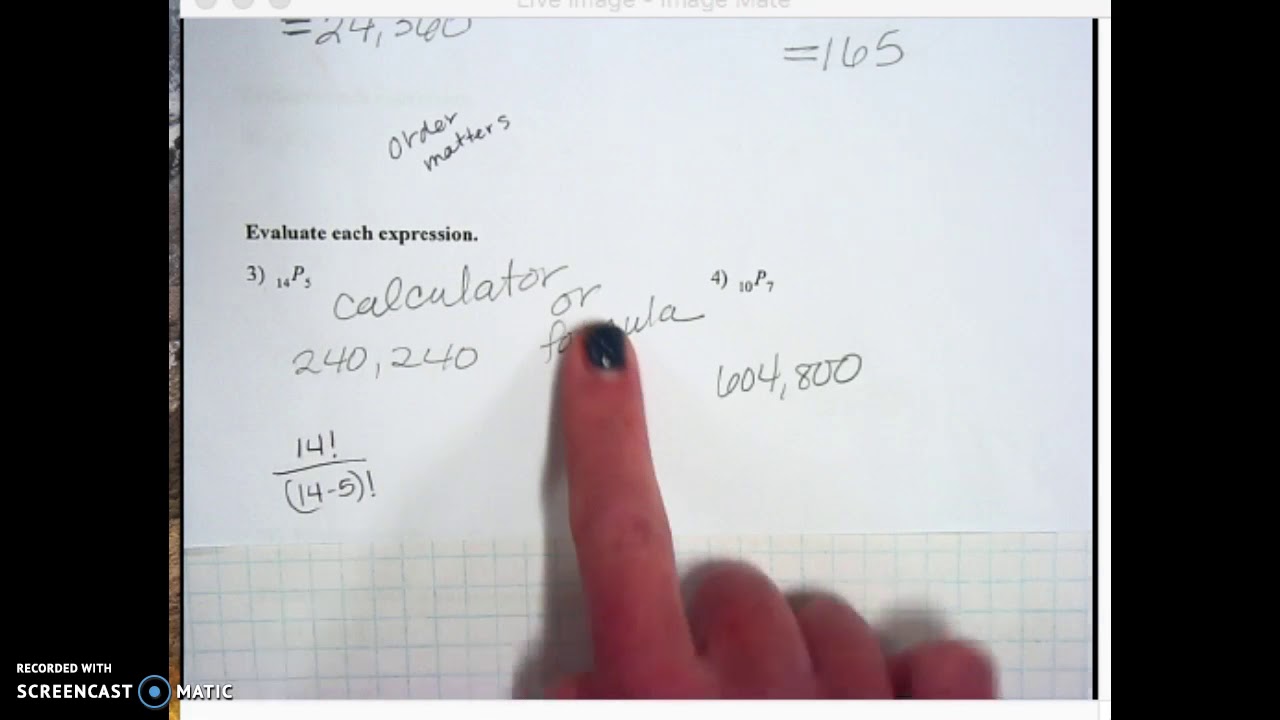 Live Image - Image Mate
=24,360
=165
order
matters
Evaluate each expression.
3) 14P5
calculator
or
4) 10P7
240,240
604,800
14!
(14-5)!
RECORDED WITH
SCREENCAST MATIC